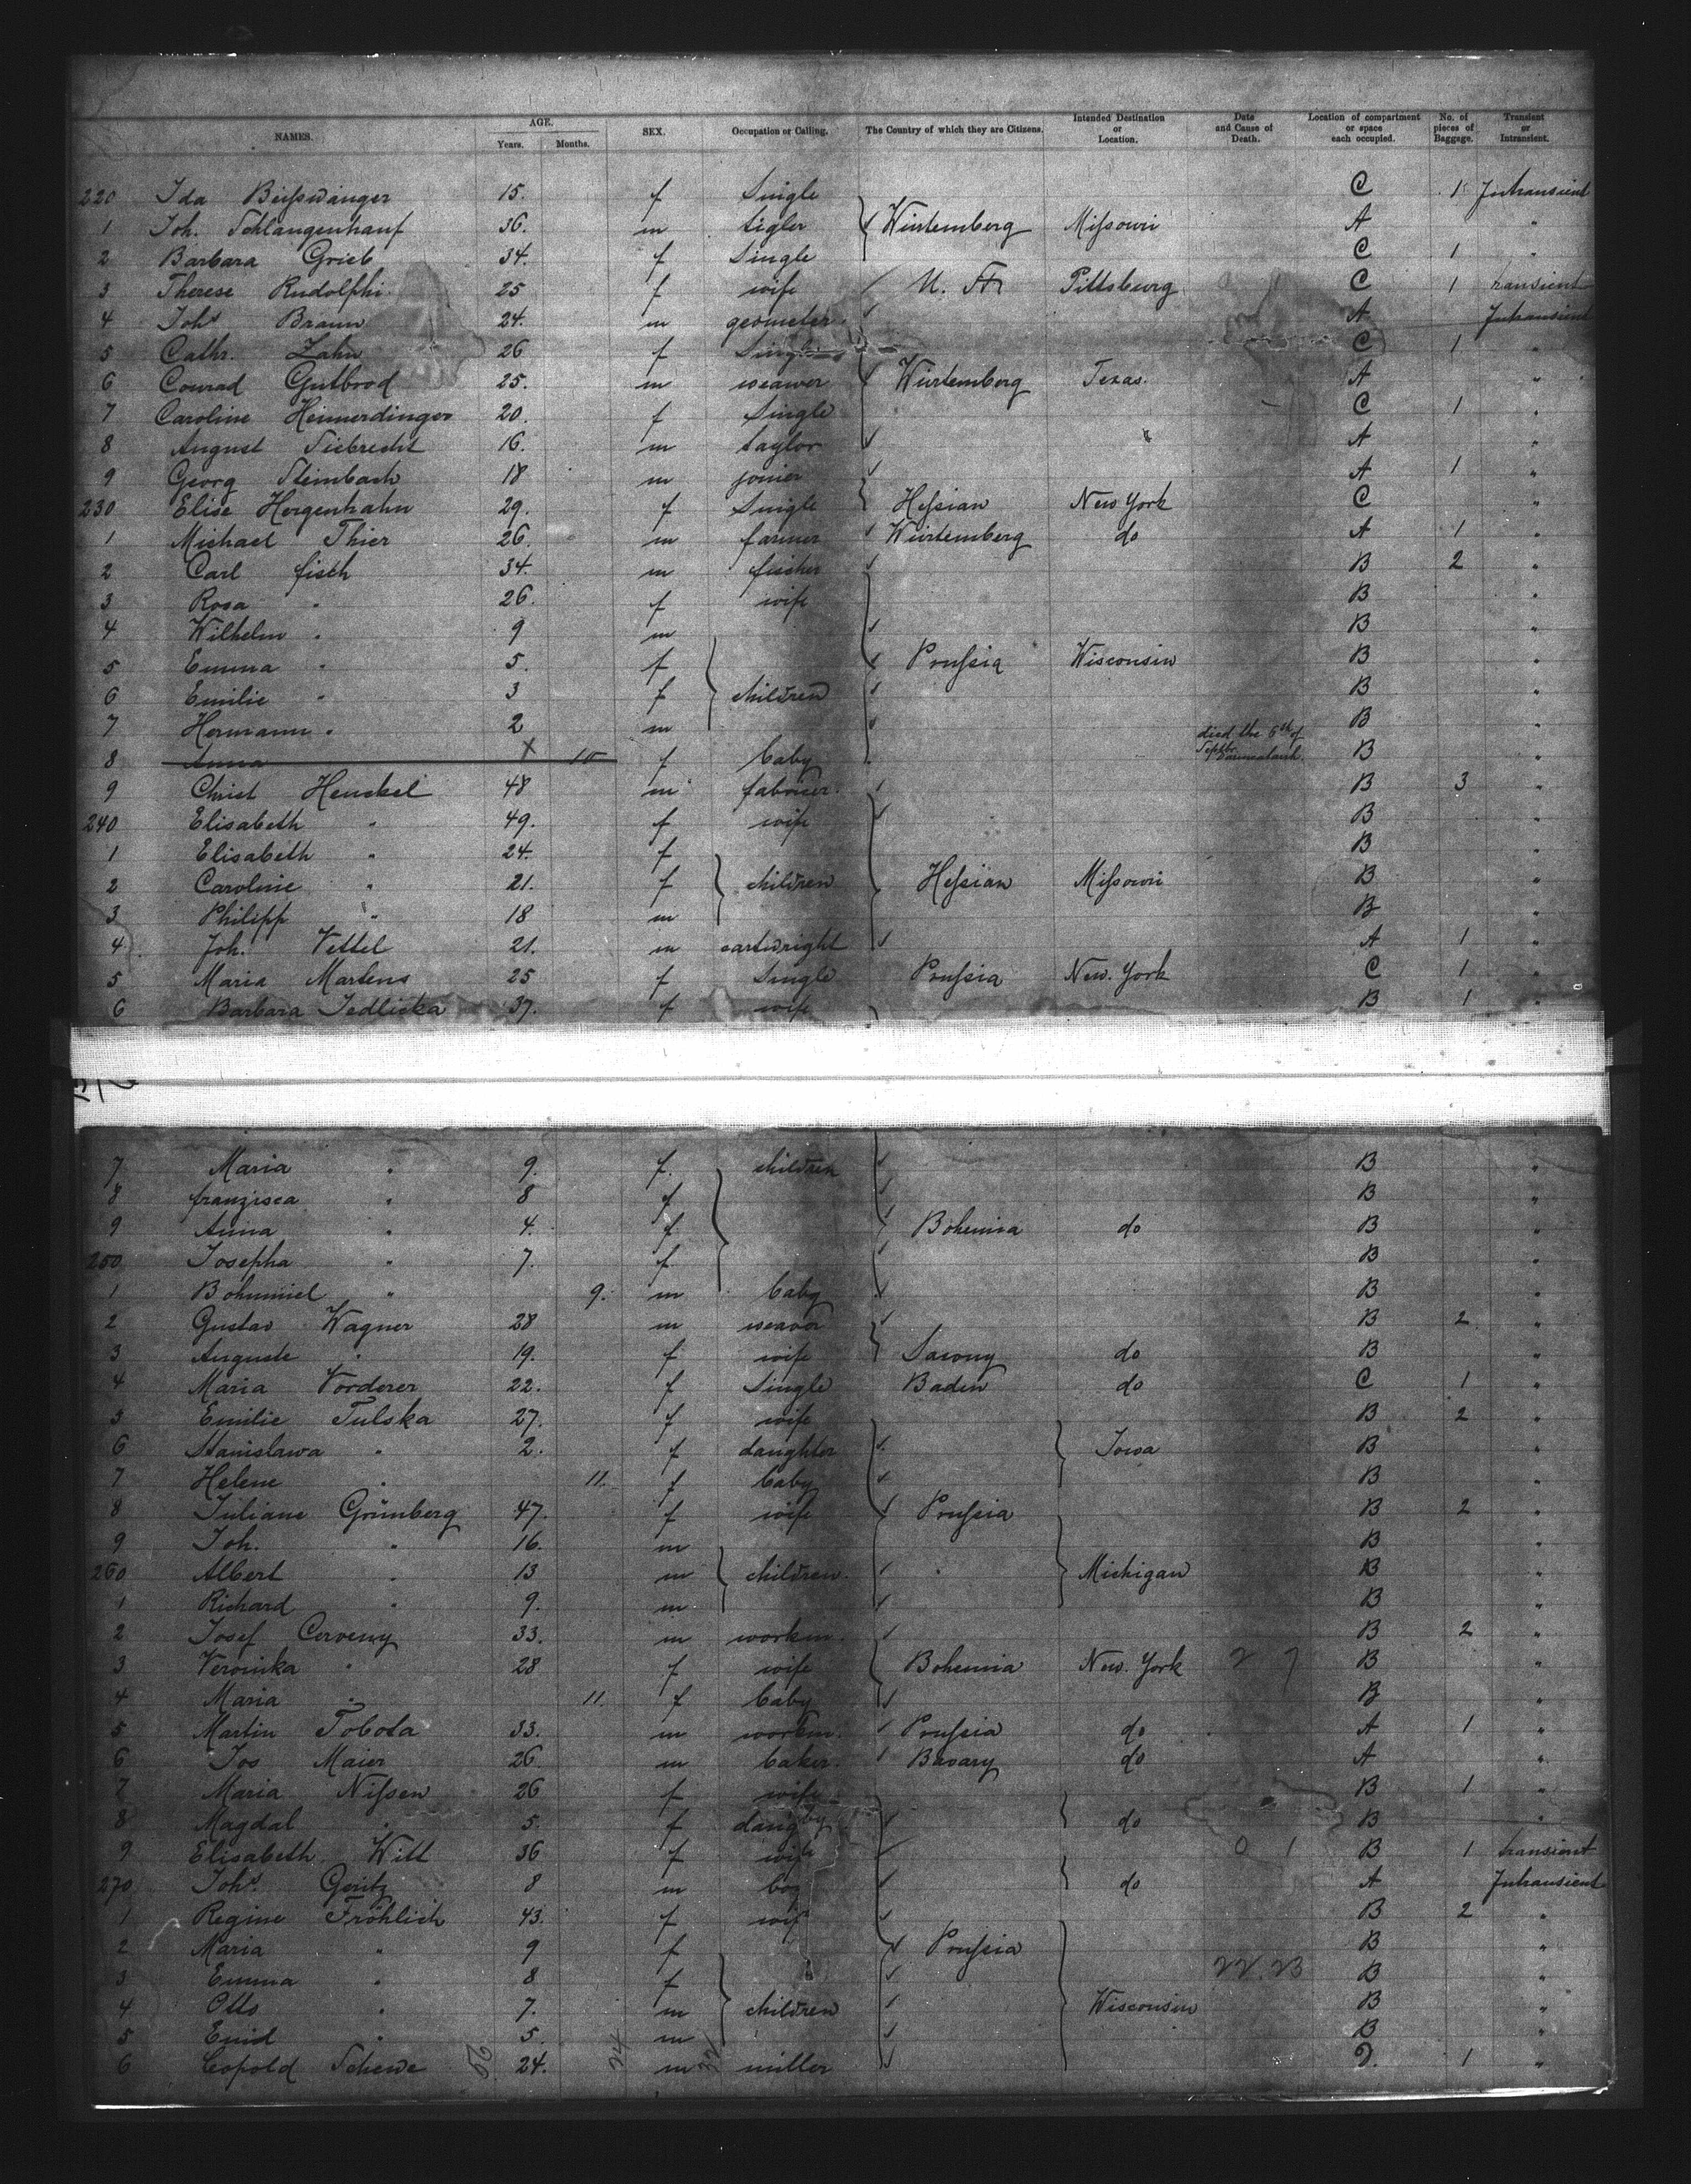 NAMES. AGE. Years. Months. SEX. Occupation or Calling. The Country of which they are Citizens. Intended Destination or Location. Date and Cause of Death. Location of compartment or space each occupied. No. of pieces of Baggage. Transient or Intransient.
220 Ida Beißwänger 15. f Single C 1 Intransient
1 Joh. Schlangenhauf 36. m tigler Würtemberg Mißouri A "
2 Barbara Grieb 34. f Single C 1 "
3 Therese Rudolphi 25 f wife U. St Pittsburg C 1 transient
4 Johs Braun 24. m geometer A Intransient
5 Cathr. Zahn 26 f Single C 1 "
6 Conrad Gutbrod 25. m weawer Würtemberg Texas. A "
7 Caroline Heimerdinger 20. f Single C 1 "
8 August Siebrecht 16. m taylor A "
9 Georg Steinbach 18 m joinier A 1 "
230 Elise Hergenhahn 29. f Single Heßian New York C "
1 Michael Thier 26. m farmer Würtemberg do A 1 "
2 Carl fisch 34. m fischer B 2 "
3 Rosa " 26. f wife B "
4 Wilhelm " 9 m B "
5 Emma " 5. f Prußia Wisconsin B "
6 Emilie " 3 f children B "
7 Hermann " 2 m B "
8 Anna 10 f baby died the 6th of Septbr. B "
9 Christ Henckel 48 m B 3 "
240 Elisabeth " 49. f wife B "
1 Elisabeth " 24. f B "
2 Caroline " 21. f children Heßian Mißouri B "
3 Philipp " 18 m B "
4 Joh. Vettel 21. m cartwright A 1 "
5 Maria Martens 25 f Single Prußia New. York C 1 "
6 Barbara Jedlicka 37. f wife B 1 "
7 Maria " 9. f. children B "
8 franzisca " 8 f B "
9 Anna " 4. f. Bohemia do B "
250 Josepha " 7. f. B "
1 Bohumiel " 9. m baby B "
2 Gustav Wagner 28 m weavor B 2 "
3 Auguste " 19. f wife Saxony do B "
4 Maria Vorderer 22. f Single Baden do C 1 "
5 Emilie Tulska 27. f wife B 2 "
6 Stanislawa " 2. f daughter Iowa B "
7 Helene " 11. f baby B "
8 Juliane Grünberg 47. f wife Prußia B 2 "
9 Joh. " 16. m B "
260 Albert " 13 m children. Michigan B "
1 Richard " 9. m B "
2 Josef Cerveny 33. m workm. B 2 "
3 Veronika " 28 f wife Bohemia New. York B "
4 Maria " 11. f baby B "
5 Martin Tobola 33. m workm. Prußia do A 1 "
6 Jos Maier 26. m baker. Bavary do A "
7 Maria Nißen 26 f wife B 1 "
8 Magdal " 5. f do B "
9 Elisabeth Witt 36 f wife 0 1 B 1 transient
270 Johs. Goritz 8 m boy do A Intransient
1 Regine Fröhlich 43. f wif B 2 "
2 Maria " 9 f Prußia B "
3 Emma " 8 f B "
4 Otto " 7. m children Wisconsin B "
5 " 5. m B "
6 Leopold Schewe 24. m miller 1 "